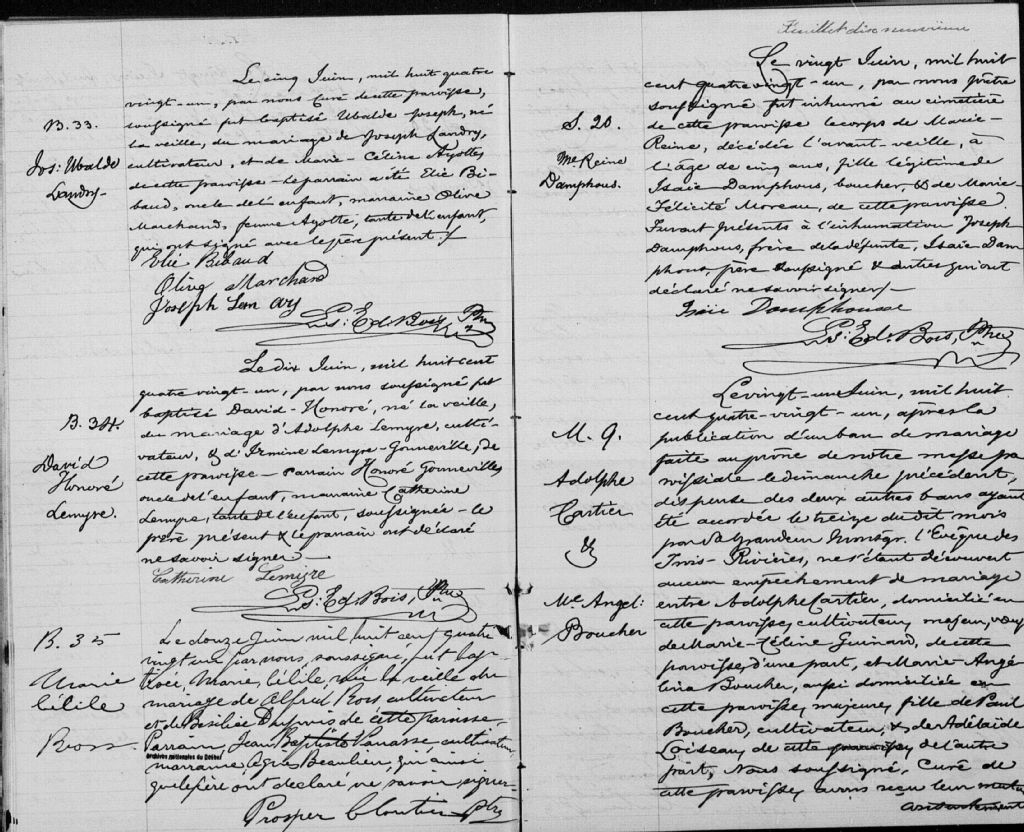 B. 33.
Jos: Ubalde
Landry-
Le cinq Juin, mil huit quatre
vingt-un, par nous Curé de cette paroisse,
soussigné fut baptisé Ubalde Joseph, né
la veille, du mariage de Joseph Landry,
cultivateur, et de Marie-Céline Ayotte,
de cette paroisse - Le parrain a été Elie Bi-
baud, oncle de l'enfant, marraine Olive
Marchand, femme Ayotte, tante de l'enfant,
qui ont signé avec le père présent./.
Elie Bibaud
Olive Marchand
Joseph Landry
Ls: Ed. Bois, Ptre
B. 34.
David
Honoré
Lemyre.
Le dix Juin, mil huit cent
quatre vingt-un, par nous soussigné fut
baptisé David-Honoré, né la veille,
du mariage d'Adolphe Lemyre, culti-
vateur, & d'Irmine Lemyre-Gonneville, de
cette paroisse - Parrain Honoré Gonneville,
oncle de l'enfant, marraine Catherine
Lemyre, tante de l'enfant, soussignée - le
père présent & le parrain ont déclaré
ne savoir signer
Catherine Lemire
Ls: Ed. Bois, Ptre
B. 35
Marie
Célile
Ross.
Le douze Juin mil huit cent quatre
vingt un par nous, soussigné, fut bap-
tisée, Marie, Célile, née la veille du
mariage de Alfred Ross cultivateur
et de Basilée Dupuis de cette paroisse-
Parrain, Jean Baptiste Vanasse cultivateur,
archives nationales du Québec
marraine, Beaulieu, qui ainsi
que le père ont déclaré ne savoir signer-
Prosper Cloutier Ptre
Feuillet dix neuvième
S. 20.
Mie Reine
Damphous.
Le vingt Juin, mil huit
cent quatre vingt-un, par nous prêtre
soussigné fut inhumé au cimetière
de cette paroisse le corps de Marie-
Reine, décédée l'avant-veille, à
l'âge de cinq ans, fille légitime de
Isaïe Damphous, boucher, & de Marie-
Félicité Moreau, de cette paroisse.
Furent présents à l'inhumation Joseph
Damphous, frère de la défunte, Isaïe Dam
phous, père soussigné & autres qui ont
déclaré ne savoir signer/-
Isaïe Damphousse
Ls: Ed. Bois, Ptre
M. 9.
Adolphe
Cartier
&
Mie Angel:
Boucher
Le vingt-un Juin, mil huit
cent quatre-vingt-un, après la
publication d'un ban de mariage
faite au prône de nôtre messe pa
roissiale le dimanche précédent,
dispense des deux autres bans ayant
été accordée le treize du dit mois
par Sa Grandeur Monsgr. l'Evêque des
Trois-Rivières, ne s'étant découvert
aucun empêchement de mariage
entre Adolphe Cartier, domicilié en
cette paroisse, cultivateur, majeur, veuf
de Marie-Céline Guinard, de cette
paroisse, d'une part, et Marie-Angé-
lina Boucher, aussi domiciliée en
cette paroisse, majeure, fille de Paul
Boucher, cultivateur, & de Adélaïde
Loiseau, de cette paroisse, de l'autre
part, Nous soussigné, Curé de
cette paroisse, avons reçu leur mutu
consentement